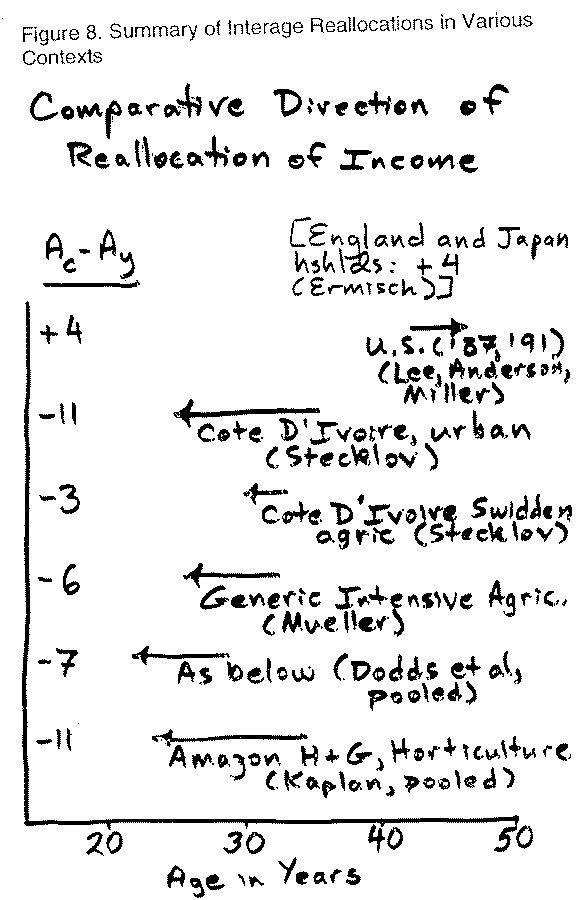 Figure 8. Summary of Interage Reallocations in Various
Contexts
Comparative Direction of
Reallocation of Income
Ac-Ay
[England and Japan
hshlds: +4
(Ermisch)]
+4
U.S. ('87, '91)
(Lee, Anderson,
Miller)
-11
Cote D'Ivoire, urban
(Stecklov)
-3
Cote D'Ivoire Swidden
agric (Stecklov)
-6
Generic Intensive Agric.
(Mueller)
-7
As below (Dodds et al,
pooled)
-11
Amazon H+G, Horticulture
(Kaplan, pooled)
20 30 40 50
Age in Years